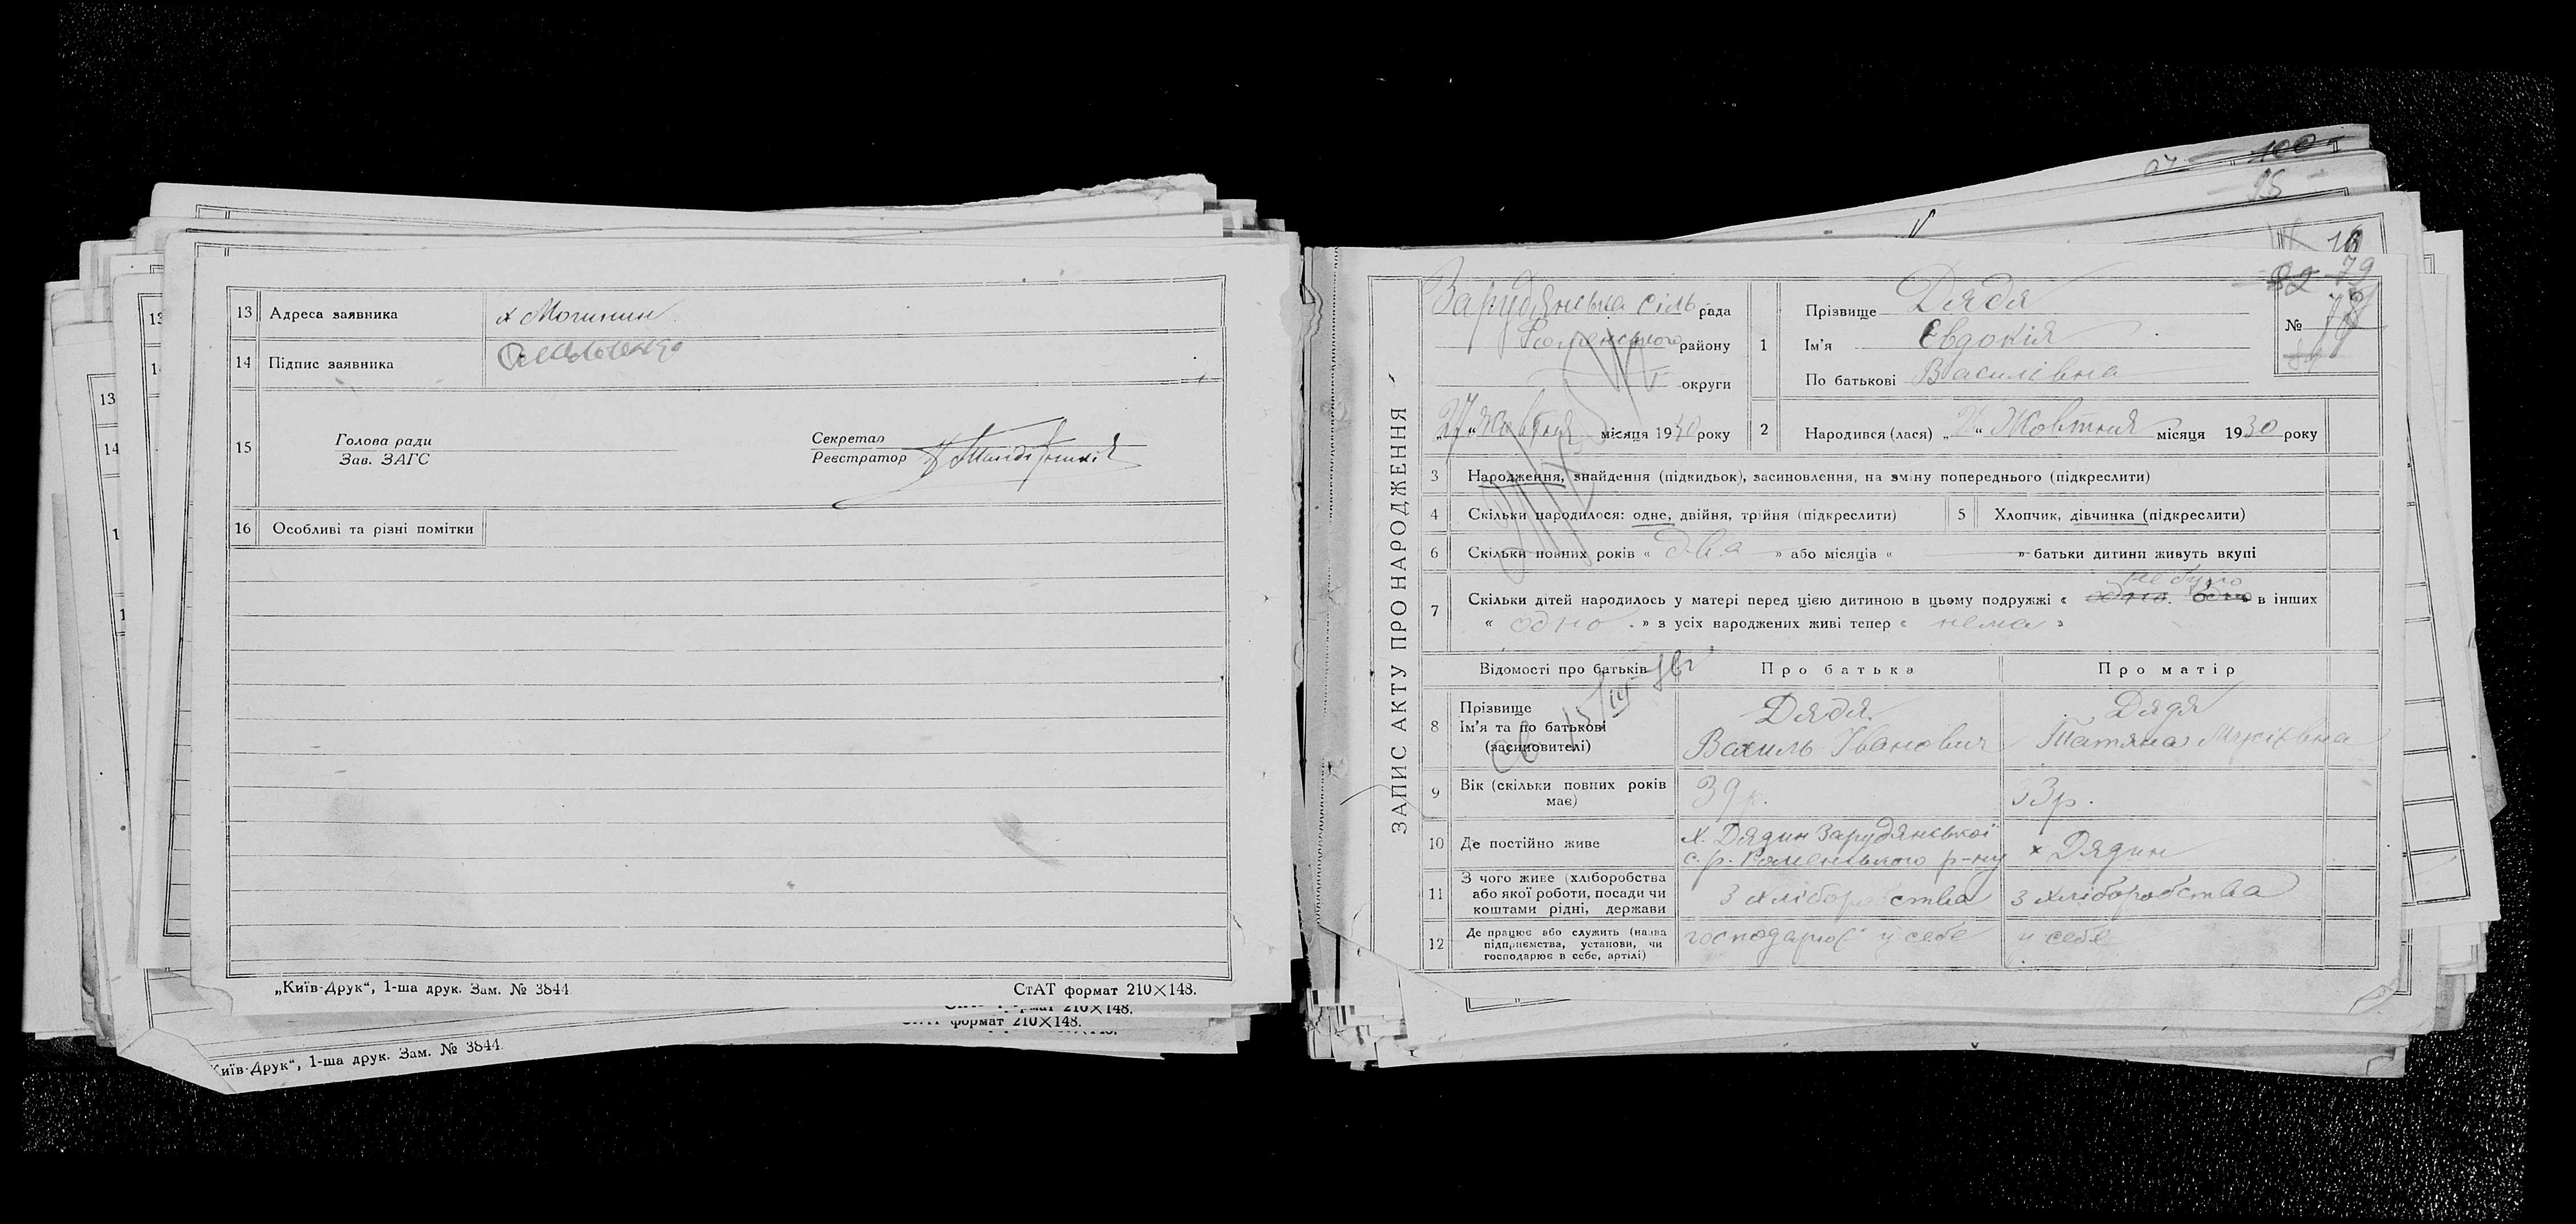 13 Адреса заявника х Могинин
14 Підпис заявника
15 Голова ради
Зав. ЗАГС
Секретар
Реєстратор
16 Особливі та різні помітки
„Київ-Друк“, 1-ша друк. Зам. № 3844
СтАТ формат 210×148.
формат 210×148.
Київ-Друк“, 1-ша друк. Зам. № 3844
100
95
ЗАПИС АКТУ ПРО НАРОДЖЕННЯ
Зарудянська сіль рада
Роменського району
округи
„27“ жовтня місяця 1930 року
1 Прізвище Дядя
Ім'я Євдокія
По батькові Василівна
82 79
№ 78
2 Народився (лася) „ “ Жовтня місяця 1930 року
3 Народження, знайдення (підкидьок), засиновлення, на зміну попереднього (підкреслити)
4 Скільки народилося: одне, двійня, трійня (підкреслити)
5 Хлопчик, дівчинка (підкреслити)
6 Скільки повних років « два » або місяців « » батьки дитини живуть вкупі
не було
7 Скільки дітей народилось у матері перед цією дитиною в цьому подружжі « одно. одно » в інших
« одно. » з усіх народжених живі тепер « нема »
Відомості про батьків Про батька Про матір
8 Прізвище
Ім'я та по батькові
(засиновителі)
Дядя
Василь Іванович
Дядя
Татяна Мусіївна
9 Вік (скільки повних років має) 39 р. 33р.
10 Де постійно живе х. Дядин Зарудянської
с. р. Роменського р-ну
х Дядин
11 З чого живе (хліборобства
або якої роботи, посади чи
коштами рідні, держави
З хліборобства з хліборобства
12 Де працює або служить (назва
підприємства, установи, чи
господарює в себе, артілі)
господарює у себе у себе